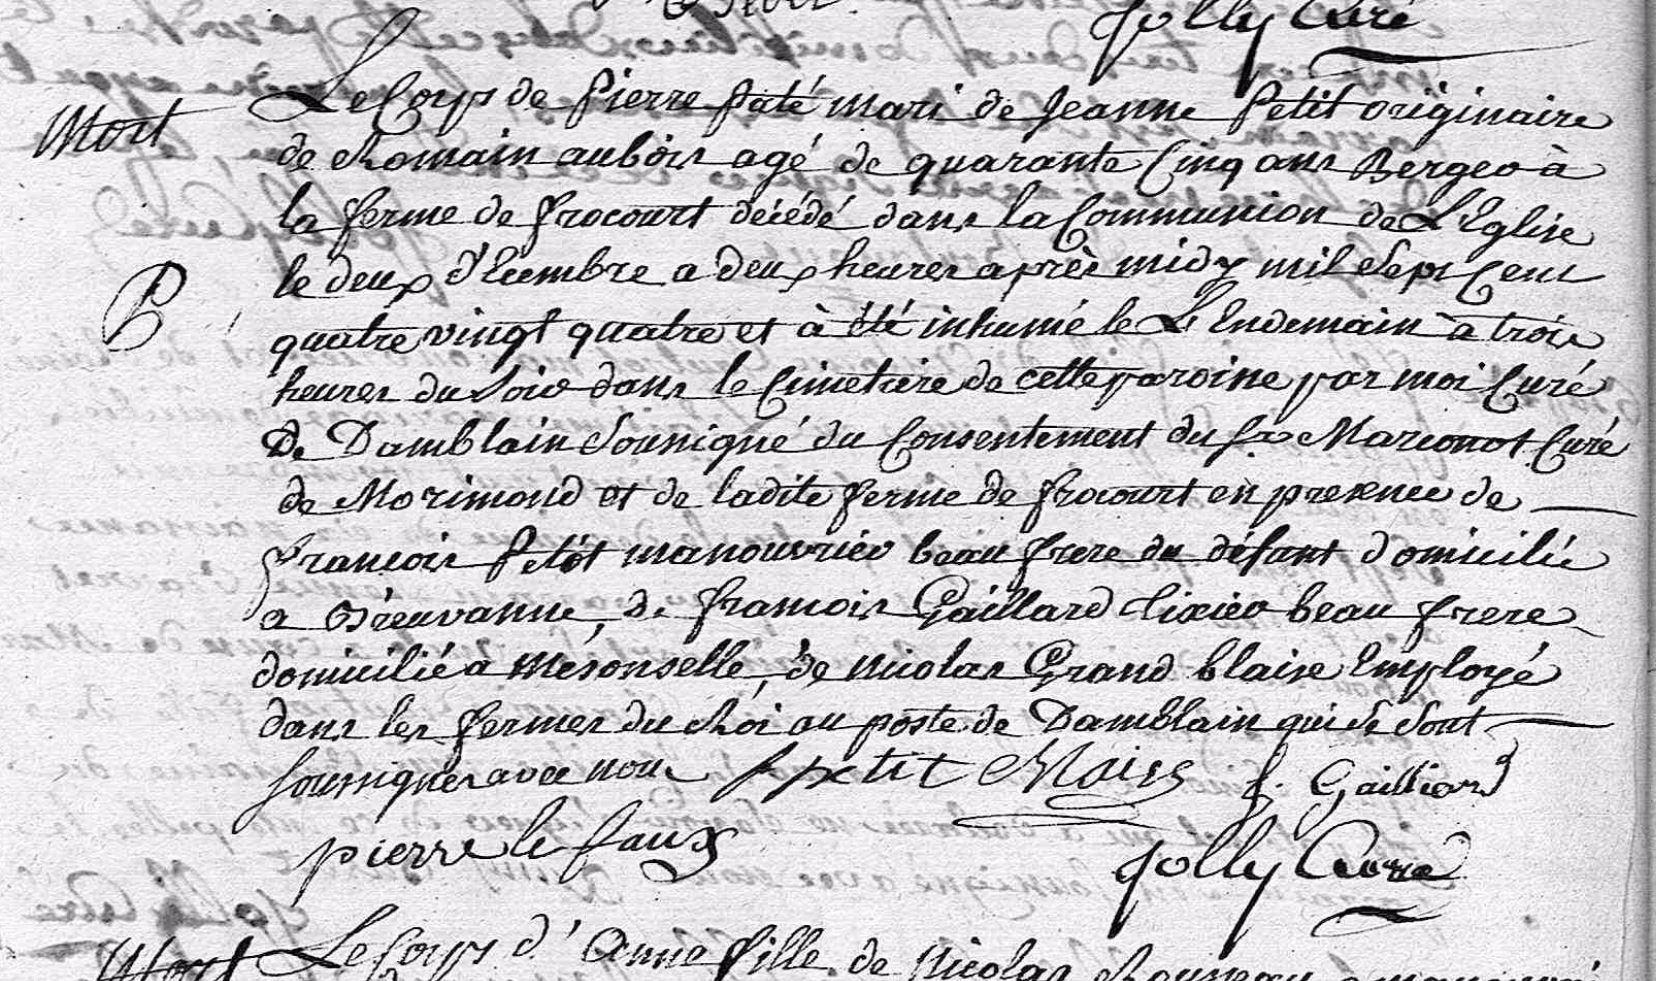 Jolly Curé
Mort
Le Corps de Pierre paté mari de Jeanne Petit originaire
de Romain aubois agé de quarante Cinq ans Berger à
la ferme de frocourt décédé dans la Communion de L'Eglise
le deux d'Ecembre a deux heures après midy mil sept Cent
P
quatre vingt quatre et à été inhumé le L'Endemain à trois
heures du soir dans le Cimetiére de cette paroisse par moi Curé
De Damblain soussigné du Consentement du Sr Marconot Curé
de Morimond et de ladite ferme de frocourt en presence de
francois Petit manouvrier beau frere du défunt domicilié
a Breuvanne, de francois Gaillard tixier beau frere
domicilié a Mesonselle, de Nicolas Grand blaise Employé
dans les fermes du Roi au poste de Damblain qui se sont
soussignés avec nous f petit f. Gailliard
pierre le faux
Jolly Curé
Mort
Le Corps d'Anne fille de Nicolas